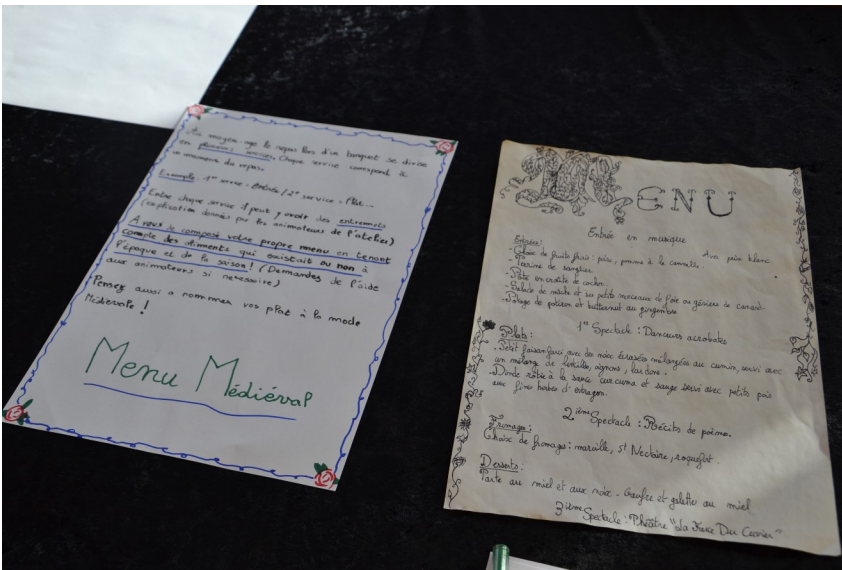 Au moyen-age le repas lors d'un banquet se divise
en plusieurs services. Chaque service correspond à
un moment du repas.
Exemple : 1er service : entrée / 2e service : Plat...
Entre chaque service il peut y avoir des entremets
(explication donnée par les animateurs de l'atelier)
A vous de composé votre propre menu en tenant
compte des aliments qui existait ou non à
l'époque et de la saison ! (Demandez de l'aide
aux animateurs si nécessaire)
Pensez aussi a nommer vos plat à la mode
Médiévale !
Menu Médiéval
MENU
Entrée en musique
Entrées:
- de fruits frais : poire, pomme à la cannelle.
- Terrine de sanglier
- Pâté en croûte de cochon
- Salade de mâche et ses petits morceaux de foie ou gésiers de canard
- Potage de potiron et butternut au gingembre
1er Spectacle : Danseurs acrobates
Plats :
- Petit faisan farci avec des noix écrasées mélangées au cumin, servi avec
un mélange de lentilles, oignons, lardons.
- Dinde rôtie à la sauce curcuma et sauge servi avec petits pois
aux fines herbes d'estragon.
2ième Spectacle : Récits de poème.
Fromages :
Choix de fromages : maroille, St Nectaire, roquefort.
Desserts :
Tarte au miel et aux noix - Gaufre et galette au miel
3ième Spectacle : Théâtre "La Farce Du Cuvier"